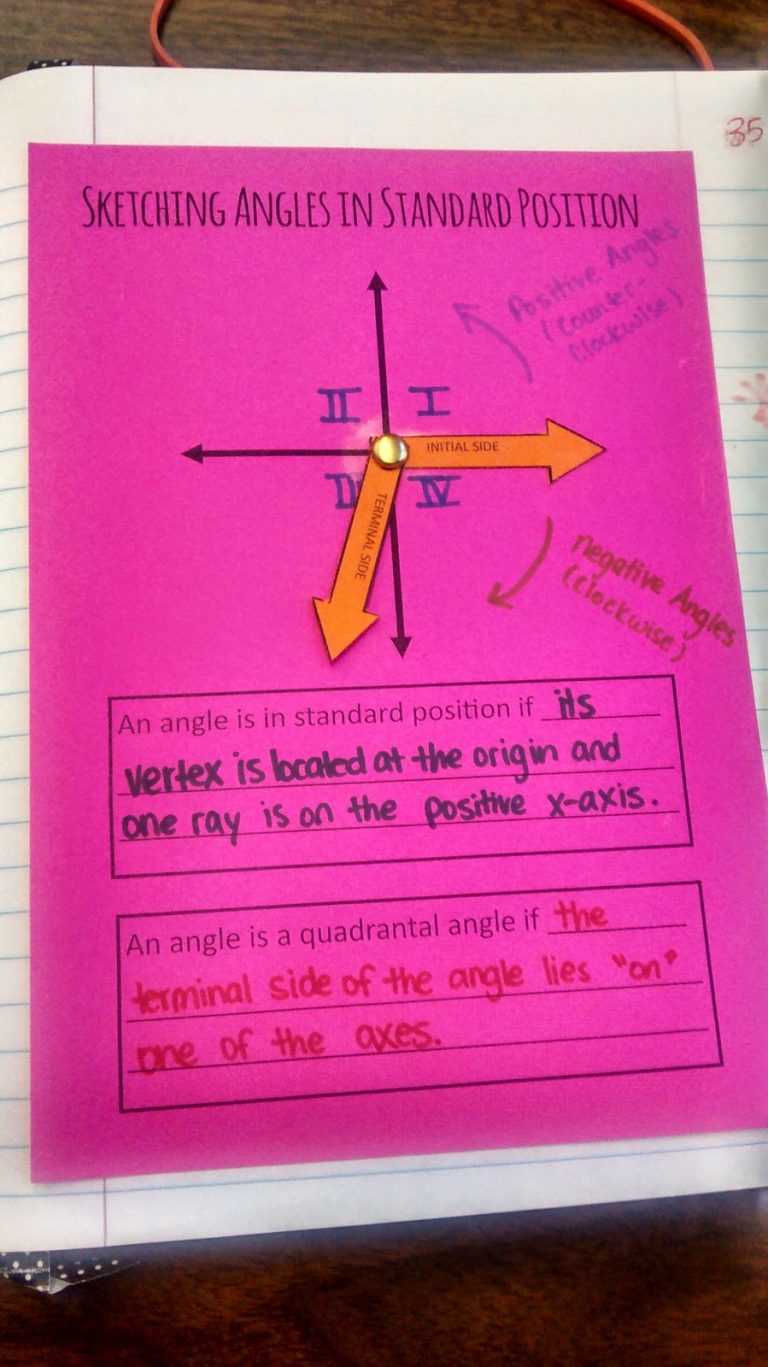 35
SKETCHING ANGLES IN STANDARD POSITION
Positive Angles
(counter-
clockwise)
II I
INITIAL SIDE
II IV
TERMINAL SIDE
negative Angles
(clockwise)
An angle is in standard position if its
vertex is located at the origin and
one ray is on the positive x-axis.
An angle is a quadrantal angle if the
terminal side of the angle lies "on"
one of the axes.